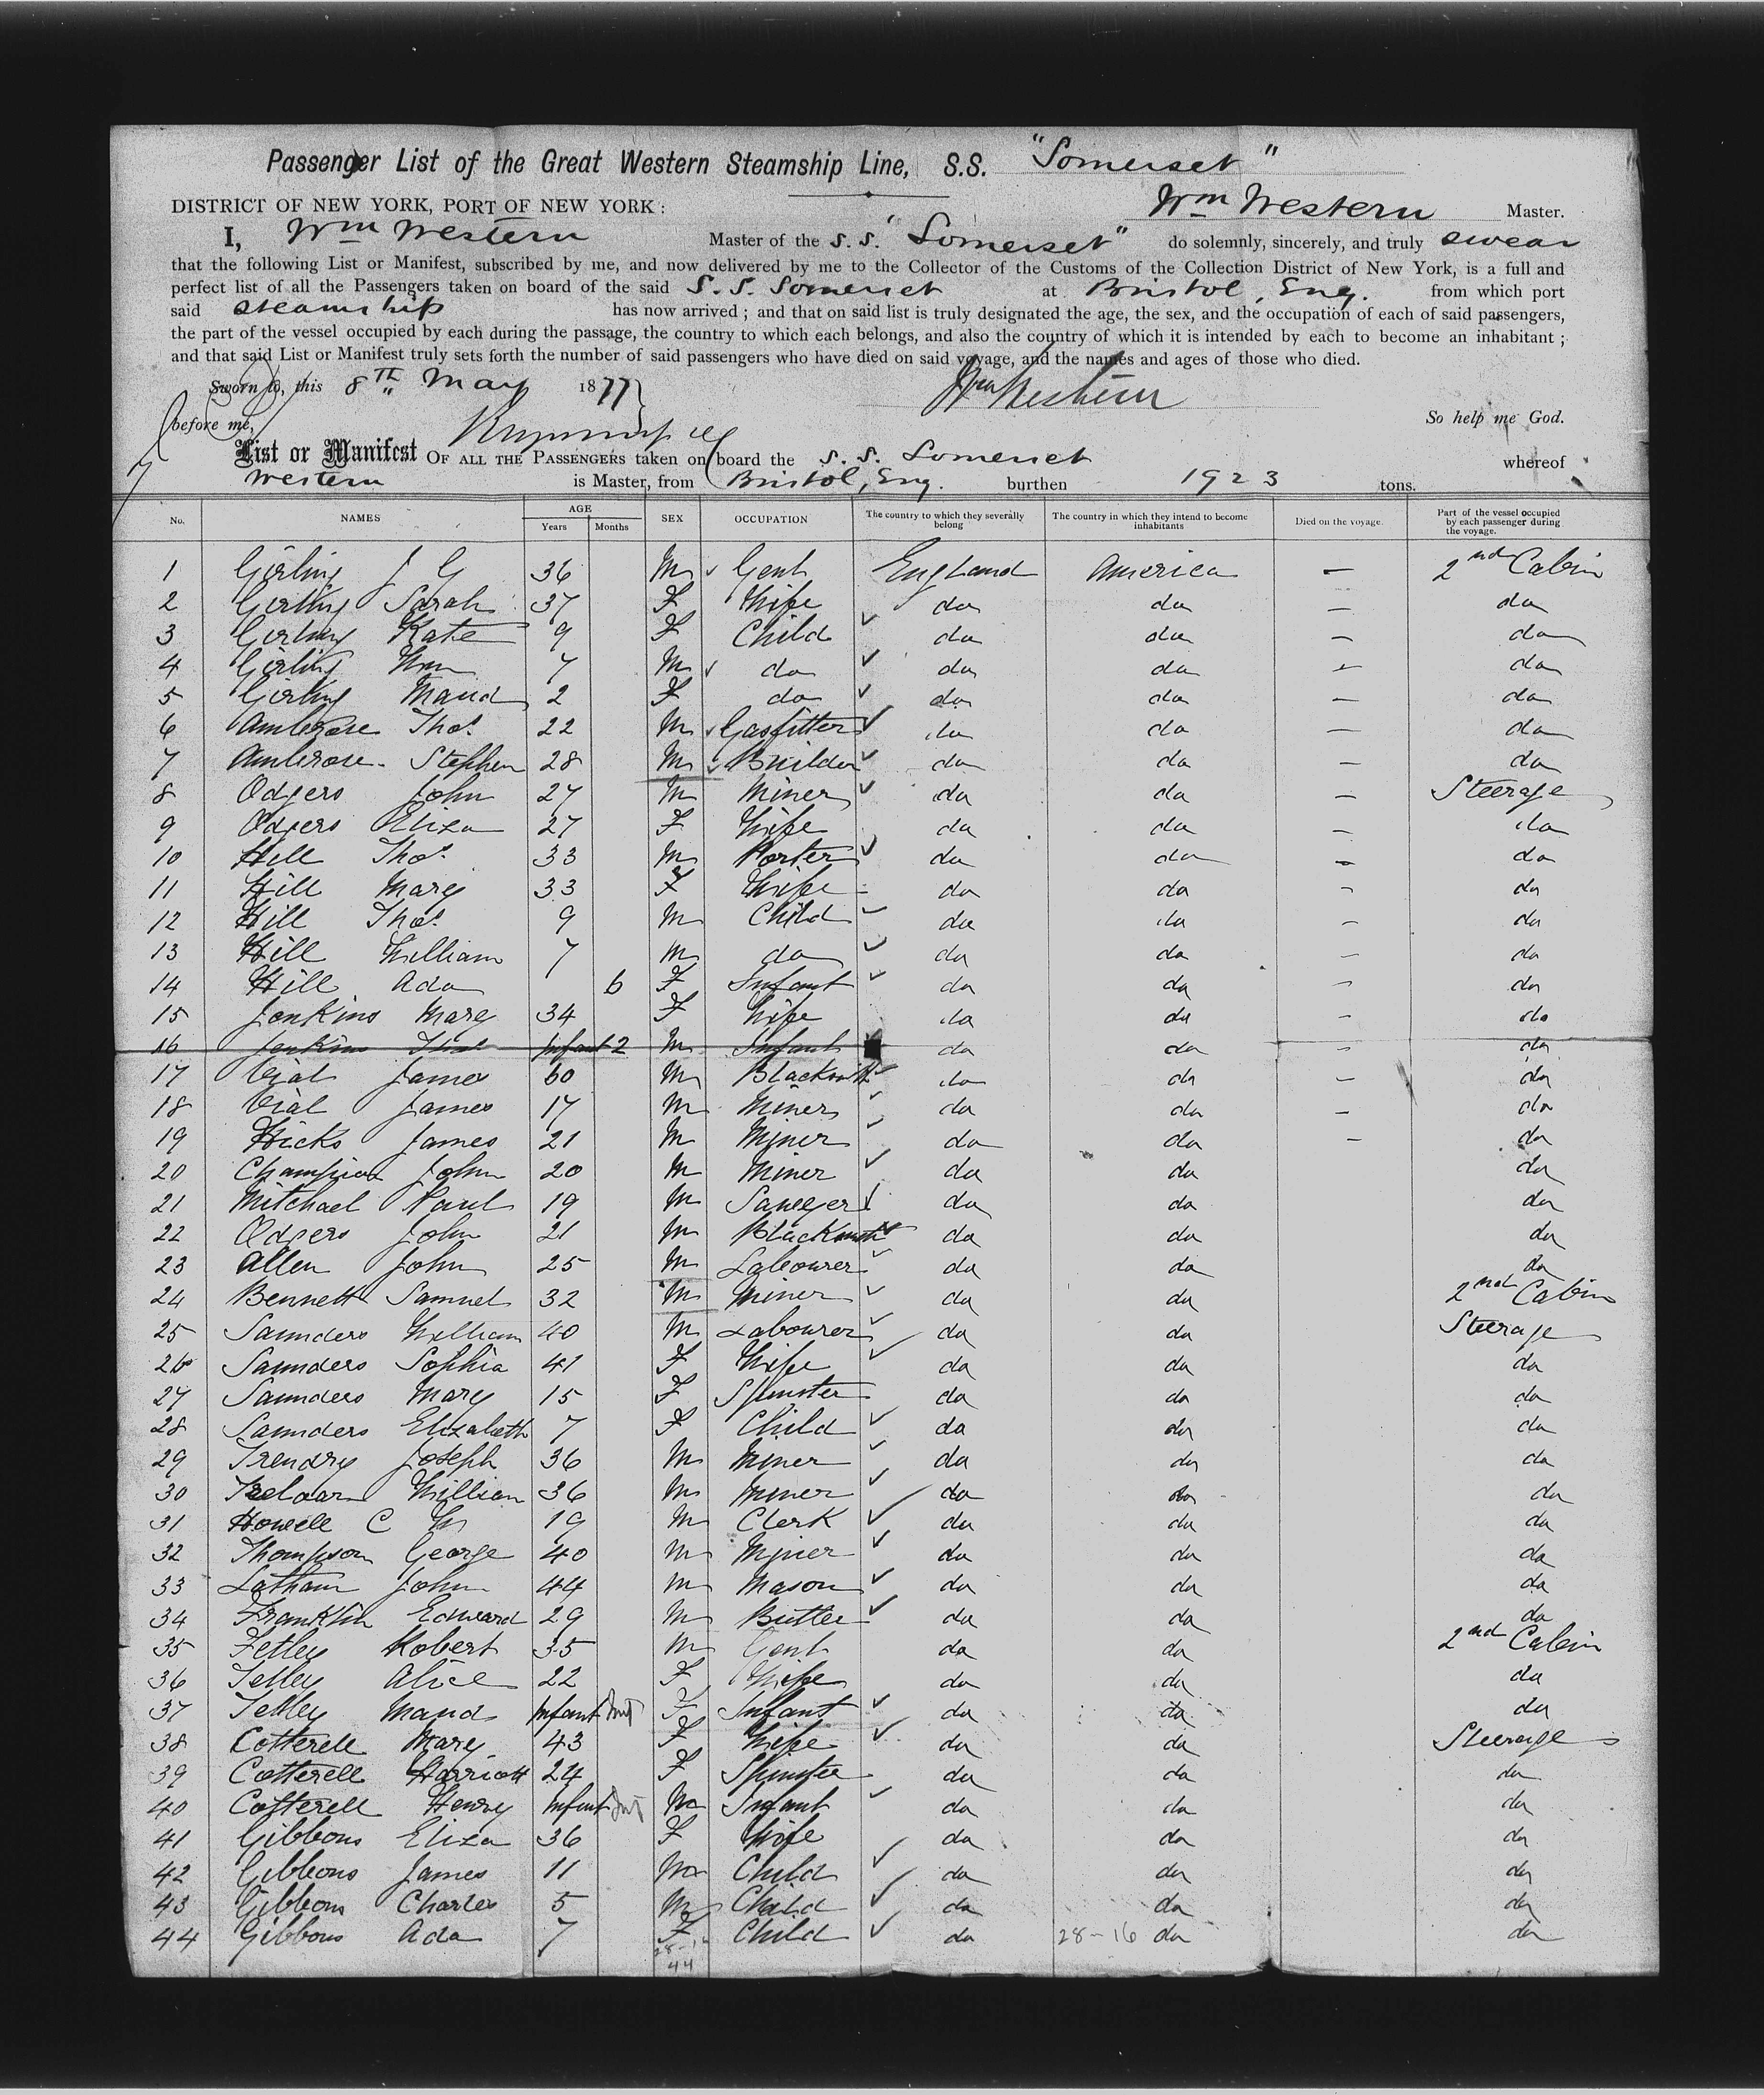 Passenger List of the Great Western Steamship Line, S.S. "Somerset"
DISTRICT OF NEW YORK, PORT OF NEW YORK: Wm Western Master.
I, Wm Western Master of the S.S. "Somerset" do solemnly, sincerely, and truly swear
that the following List or Manifest, subscribed by me, and now delivered by me to the Collector of the Customs of the Collection District of New York, is a full and
perfect list of all the Passengers taken on board of the said S.S. Somerset at Bristol, Eng. from which port
said steamship has now arrived; and that on said list is truly designated the age, the sex, and the occupation of each of said passengers,
the part of the vessel occupied by each during the passage, the country to which each belongs, and also the country of which it is intended by each to become an inhabitant;
and that said List or Manifest truly sets forth the number of said passengers who have died on said voyage, and the names and ages of those who died.
Sworn to, this 8TH May 1877 Wm Western
before me, So help me God.
List or Manifest OF ALL THE PASSENGERS taken on board the S.S. Somerset whereof
Western is Master, from Bristol, Eng. burthen 1923 tons.
No. NAMES AGE Years Months SEX OCCUPATION The country to which they severally belong The country in which they intend to become inhabitants Died on the voyage. Part of the vessel occupied by each passenger during the voyage.
1 Girling J G 36 M Gent England America — 2nd Cabin
2 Girling Sarah 37 F Wife do do — do
3 Girling Kate 9 F Child do do — do
4 Girling Wm 7 M do do do — do
5 Girling Maud 2 F do do do — do
6 Ambrose Thos. 22 M Gasfitter do do — do
7 Ambrose Stephen 28 M Builder do do — do
8 Odgers John 27 M Miner do do — Steerage
9 Odgers Eliza 27 F Wife do do — do
10 Hill Thos. 33 M Porter do do — do
11 Hill Mary 33 F Wife do do — do
12 Hill Thos. 9 M Child do do — do
13 Hill William 7 M do do do — do
14 Hill Ada 6 F Infant do do — do
15 Jenkins Mary 34 F Wife do do — do
16 Jenkins Infant 2 M Infant do do — do
17 Vial James 60 M Blacksmith do do — do
18 Vial James 17 M Miner do do — do
19 Hicks James 21 M Miner do do — do
20 Champion John 20 M Miner do do do
21 Mitchael Paul 19 M Sawyer do do do
22 Odgers John 21 M Blacksmith do do do
23 Allen John 25 M Labourer do do do
24 Bennett Samuel 32 M Miner do do 2nd Cabin
25 Saunders William 40 M Labourer do do Steerage
26 Saunders Sophia 41 F Wife do do do
27 Saunders Mary 15 F Spinster do do do
28 Saunders Elizabeth 7 F Child do do do
29 Trendry Joseph 36 M Miner do do do
30 Treloar William 36 M Miner do do do
31 Howell C W 19 M Clerk do do do
32 Thompson George 40 M Miner do do do
33 Latham John 44 M Mason do do do
34 Franklin Edward 29 M Butler do do do
35 Tetley Robert 35 M Gent do do 2nd Cabin
36 Tetley Alice 22 F Wife do do do
37 Tetley Maud Infant F Infant do do do
38 Cotterell Mary 43 F Wife do do Steerage
39 Cotterell Harriott 24 F Spinster do do do
40 Cotterell Henry Infant M Infant do do do
41 Gibbons Eliza 36 F Wife do do do
42 Gibbons James 11 M Child do do do
43 Gibbons Charles 5 M Child do do do
44 Gibbons Ada 7 F Child do 28-16 do do
28-16
44